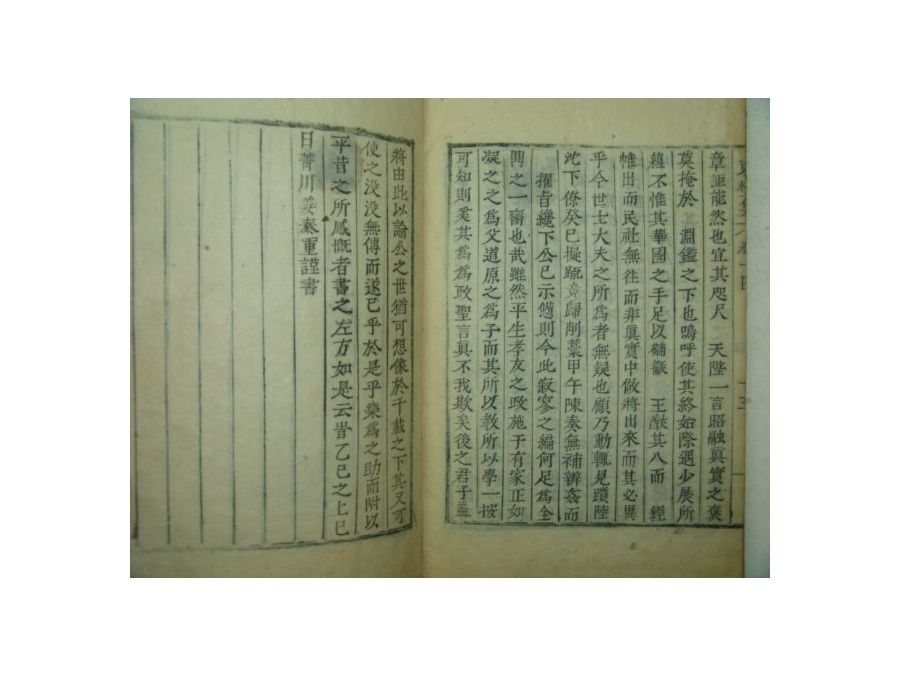 章詎能然也宜其咫尺 天陛一言昭融眞實之褒
莫掩於 淵鑑之下也嗚呼使其終始際遇少展所
蘊不惟其華國之手足以黼黻 王猷其入而 經
帷出而民社無往而非眞實中做將出來而其必異
乎今世士大夫之所爲者無疑也顧乃動輒見躓陸
沈下僚癸巳擬䟽竟歸削藁甲午陳奏無補辨姦而
擢旨纔下公已示憊則今此寂寥之編何足爲全
興之一臠也哉雖然平生孝友之政施于有家正如
凝之之爲父道原之爲子而其所以教所以學一按
可知則奚其爲爲政聖言眞不我欺矣後之君子盖
將由此以論公之世猶可想像於千載之下其又可
使之没没無傳而遂已乎於是乎樂爲之助而附以
平昔之所感慨者書之左方如是云旹乙巳之上巳
日菁川姜泰重謹書